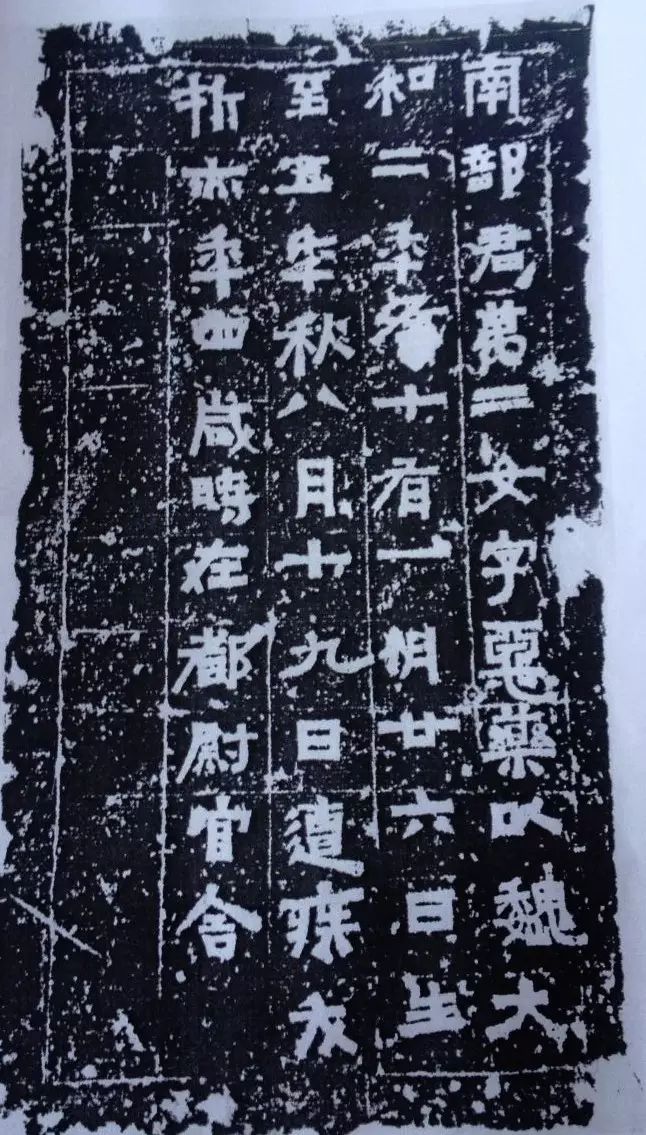 南部君第二女字惡藥以魏大
和二年十有一廿六日生
至五年秋八月十九日遭疾夭
折年四歲時在都尉官舍